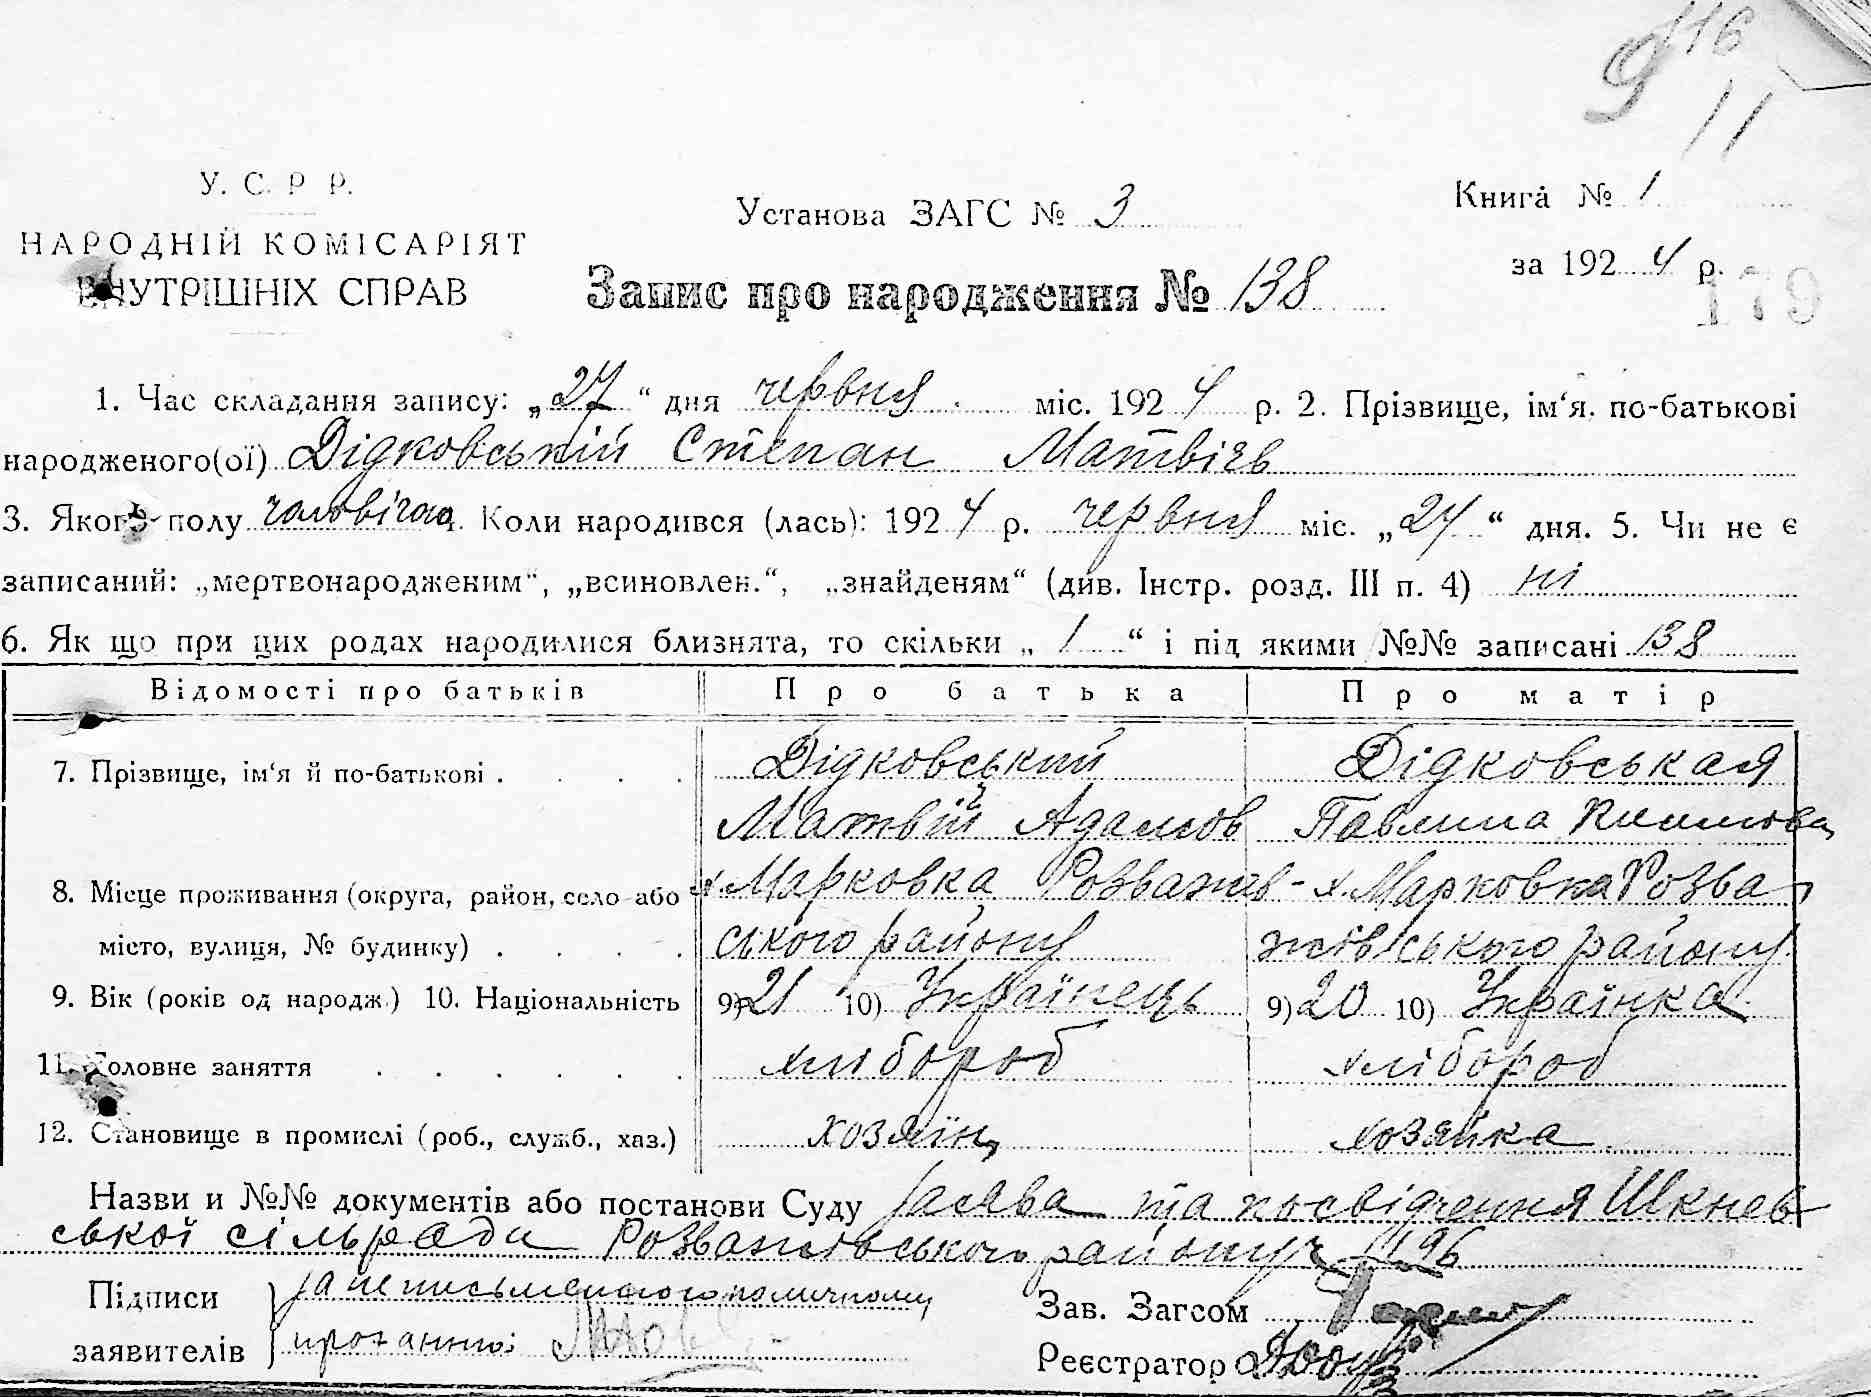 116
9
11
У. С. Р. Р.
НАРОДНІЙ КОМІСАРІЯТ
ВНУТРІШНІХ СПРАВ
Установа ЗАГС № 3
Книга № 1
за 1924 р.
179
Запис про народження № 138
1. Час складання запису: „27“ дня червня міс. 1924 р. 2. Прізвище, ім‘я, по-батькові
народженого(ої) Дідковській Степан Матвієв
3. Якого полу чоловічого 4. Коли народився (лась): 1924 р. червня міс. „24“ дня. 5. Чи не є
записаний: „мертвонародженим“, „всиновлен.“, „знайденям“ (див. Інстр. розд. III п. 4) ні
6. Як що при цих родах народилися близнята, то скільки „1“ і під якими №№ записані 138
Відомості про батьків Про батька Про матір
7. Прізвище, ім‘я й по-батькові . . . . Дідковський Дідковськая
Матвій Адамов Павлина
8. Місце проживання (округа, район, село або х. Марковка Розважів- х. Марковка Розва
місто, вулиця, № будинку) . . . . ського району жівського району
9. Вік (років од народж.) 10. Національність 9) 21 10) Українець 9) 20 10) Українка
11. Головне заняття . . . . . . хлібороб хлібороб
12. Становище в промислі (роб., служб., хаз.) хозяїн хозяйка
Назви и №№ документів або постанови Суду Заява та посвідчення Шкнев
ської сільради Розважівського району 1196
Підписи
заявителів
За неписьменного
Зав. Загсом
Реєстратор